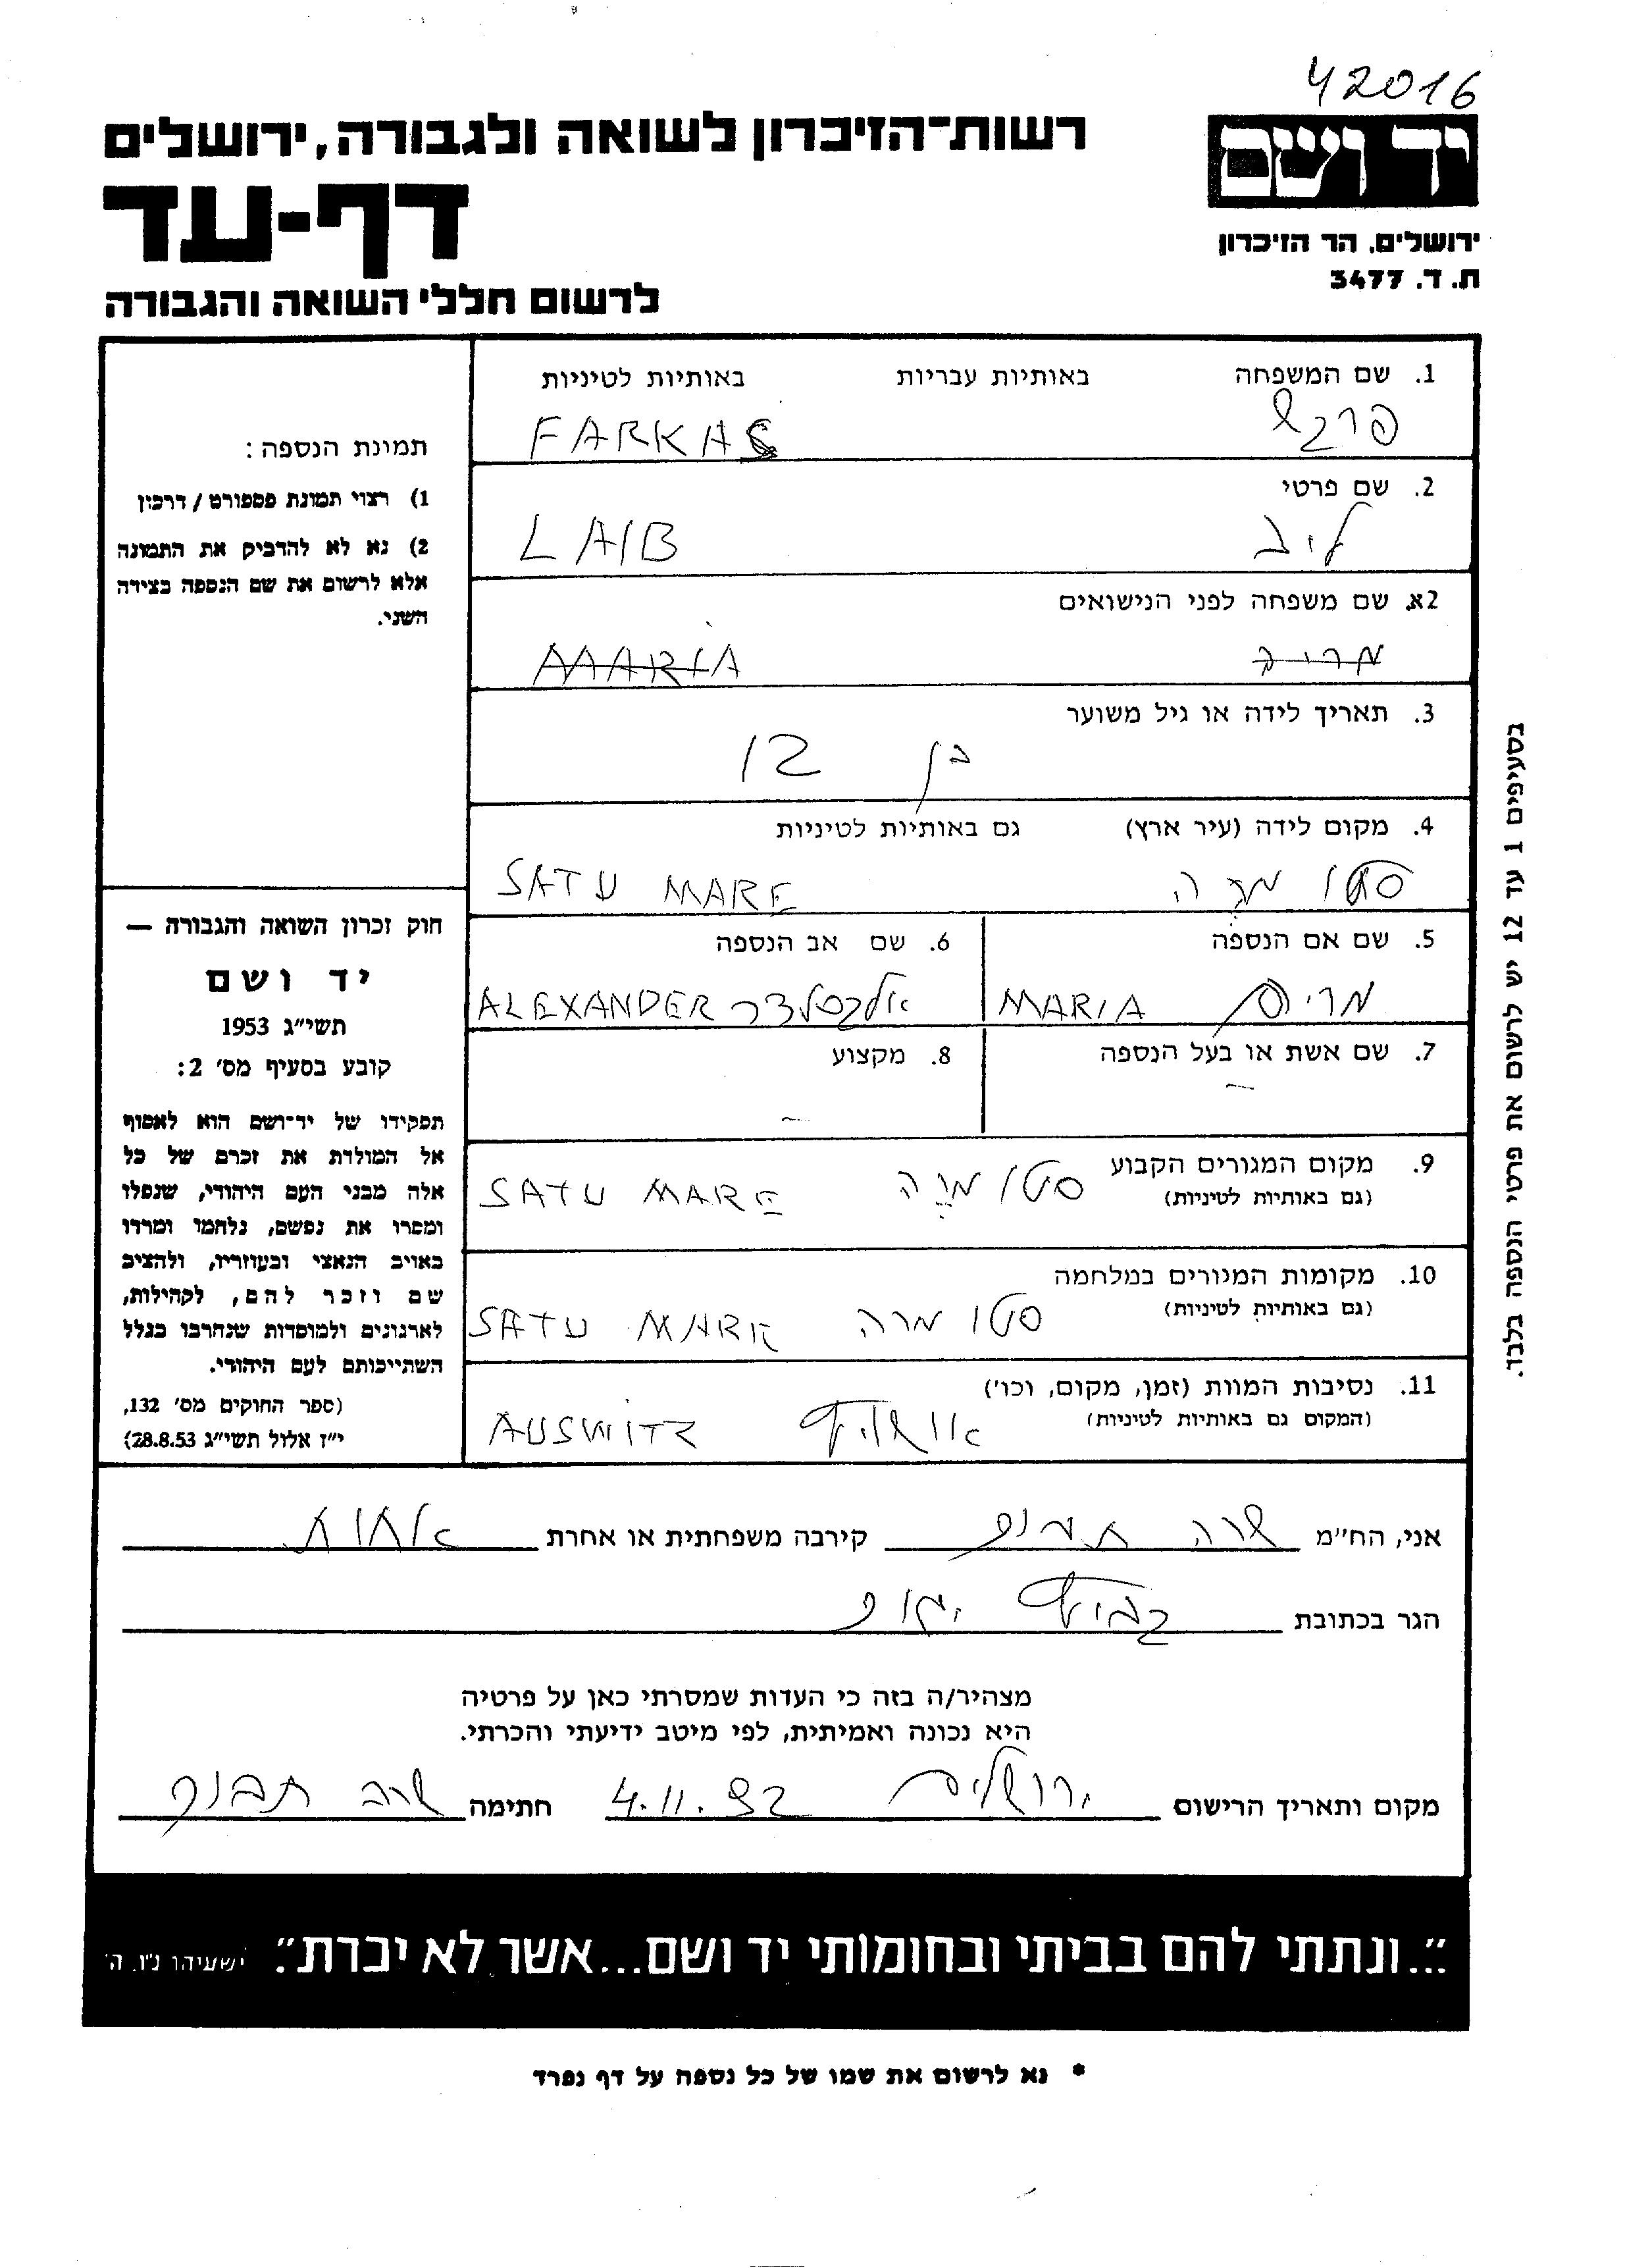 42016
יד ושם
ירושלים, הר הזיכרון
ת. ד. 3477
רשות־הזיכרון לשואה ולגבורה, ירושלים
דף-עד
לרשום חללי השואה והגבורה
1. שם המשפחה באותיות עבריות באותיות לטיניות
פרקש FARKAS
2. שם פרטי
ליב LAIB
2א. שם משפחה לפני הנישואים
MARIA
3. תאריך לידה או גיל משוער
בן 12
4. מקום לידה (עיר ארץ) גם באותיות לטיניות
סטו מרה SATU MARE
5. שם אם הנספה
מרים MARIA
6. שם אב הנספה
אלכסנדר ALEXANDER
7. שם אשת או בעל הנספה
–
8. מקצוע
–
9. מקום המגורים הקבוע
(גם באותיות לטיניות)
סטו מרה SATU MARE
10. מקומות המגורים במלחמה
(גם באותיות לטיניות)
סטו מרה SATU MARE
11. נסיבות המוות (זמן, מקום, וכו')
(המקום גם באותיות לטיניות)
אושויץ AUSWITZ
תמונת הנספה:
1) רצוי תמונת פספורט / דרכון
2) נא לא להדביק את התמונה
אלא לרשום את שם הנספה בצידה
השני.
חוק זכרון השואה והגבורה —
יד ושם
תשי״ג 1953
קובע בסעיף מס׳ 2:
תפקידו של יד־ושם הוא לאסוף
אל המולדת את זכרם של כל
אלה מבני העם היהודי, שנפלו
ומסרו את נפשם, נלחמו ומרדו
באויב הנאצי ובעוזריו, ולהציב
שם וזכר להם, לקהילות,
לארגונים ולמוסדות שנחרבו בגלל
השתייכותם לעם היהודי.
(ספר החוקים מס׳ 132,
י״ז אלול תשי״ג 28.8.53)
בסעיפים 1 עד 12 יש לרשום את פרטי הנספה בלבד.
אני, הח״מ שרה קירבה משפחתית או אחרת אחות
הגר בכתובת
מצהיר/ה בזה כי העדות שמסרתי כאן על פרטיה
היא נכונה ואמיתית, לפי מיטב ידיעתי והכרתי.
מקום ותאריך הרישום ירושלים 4.11.92 חתימה שרה
״...ונתתי להם בביתי ובחומותי יד ושם...אשר לא יכרת״. ישעיהו נ״ו, ה׳
* נא לרשום את שמו של כל נספה על דף נפרד